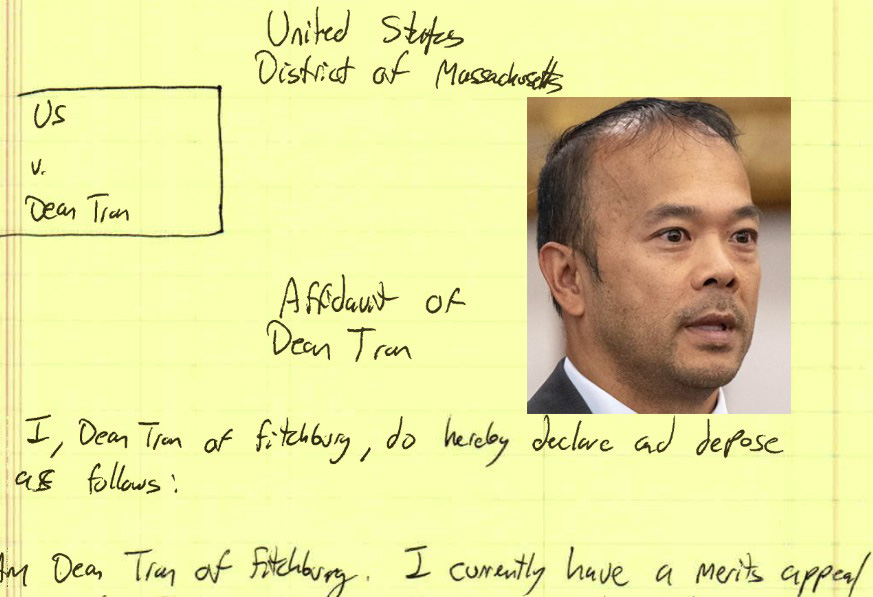 United States
District of Massachusetts
US
v.
Dean Tran
Affidavit of
Dean Tran
I, Dean Tran of fitchburg, do hereby declare and depose
as follows:
Am Dean Tran of Fitchburg. I currently have a merits appeal